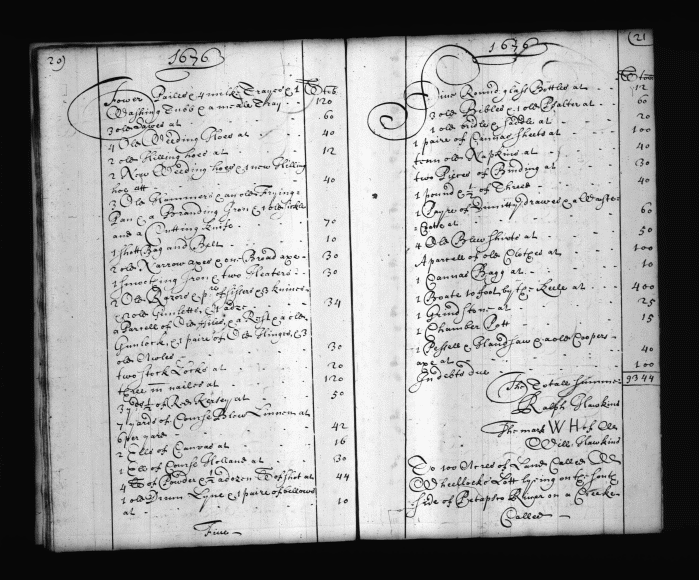 20)
1676
lb tob
Fower Pailes & 4 milke Trayes & 1
Washing Tubb & a meale Tray - 120
3 old Sawes at - 60
4 Old Weeding Hoes at - 40
2 old Hilling hoes at - 12
2 New Weeding hoes & 1 new Hilling
hoe att - 40
3 Old Hammers & an old Frying-
Pan & a Branding Iron & 1 old Sickle
and a Cutting knife - 70
1 Shott Bag and Belt - 10
2 old Narrow axes & one Broad axe - 30
1 smooting Iron & two Heaters - 30
2 Old Razors & 1 pr of sissers & 3 knives
& 2 old Gimletts & 1 adze - 34
a Parcell of Old & a Rest & a old
Gunlock & 1 paire of Old Hinges & 3
old - 30
two stock Locks at - 20
three m nailes at - 120
3 yds 1/2 of Red Kersey at - 50
7 yards of Course Blew Linnen at
6 per yard - 42
2 Ells of Canvas at - 16
1 Ell of Course Holland at - 30
4 lb of Powder & 1/2 a dozen lb of shot at - 44
1 old Drum Lyne & 1 paire of bellows
at - 10
Five -
1676
21
lb tob
Five Round glass Bottles at - 12
3 old Bibles & 1 old Psalter at - 60
1 old bridle & saddle at - 20
1 paire of Canvas sheets at - 100
tenn old Napkins at - 40
two Pieces of Binding at - 30
1 pound & 1/2 of Thred - 40
1 Payre of drawes & a Waste-
Cote at - 60
4 Old Blew shirts at - 50
A parcell of old Clothes at - 100
1 Canvas Bagg at - 10
1 Boate 16 foot by the Keele at - 400
1 Grind stone at - 25
1 Chamber Pott - 15
1 Pestell & hand saw & a old Coopers
axe at - 40
In debts due - 100
The Totall summe 9344
Ralph Hawkins
The mark W H of
Will: Hawkins
To 100 Acres of Land Called
Wheelocks Lott lying on the south
side of Petapsco River on a Creeke
Called -